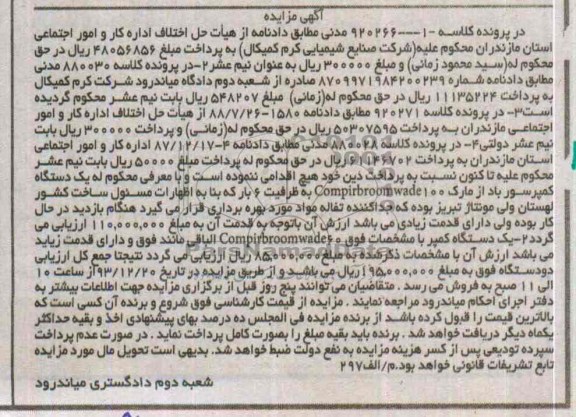 آگهی مزایده
در پرونده کلاسه -۱---۹۲۰۲۶۶ مدنی مطابق دادنامه از هیأت حل اختلاف اداره کار و امور اجتماعی
استان مازندران محکوم علیه(شرکت صنایع شیمیایی کرم کمیکال) به پرداخت مبلغ ۴۸۰۵۶۸۵۶ ریال در حق
محکوم له(سید محمود زمانی) و مبلغ ۳۰۰۰۰۰ ریال به عنوان نیم عشر۲-در پرونده کلاسه ۸۸۰۰۳۰ مدنی
مطابق دادنامه شماره ۸۷۰۹۹۷۱۹۸۴۲۰۰۲۳۹ صادره از شعبه دوم دادگاه میاندرود شرکت کرم کمیکال
به پرداخت ۱۱۱۳۵۲۲۴ ریال در حق محکوم له(زمانی) مبلغ ۵۴۸۲۰۷ ریال بابت نیم عشر محکوم گردیده
است۳- در پرونده کلاسه ۹۲۰۲۷۱ مطابق دادنامه ۱۵۸۰-۸۸/۷/۲۶ از هیأت حل اختلاف اداره کار و امور
اجتماعی مازندران به پرداخت ۵۰۳۰۷۵۹۵ ریال در حق محکوم له(زمانی) و پرداخت ۳۰۰۰۰۰ ریال بابت
نیم عشر دولتی۴- در پرونده کلاسه ۸۸۰۰۲۸ مدنی مطابق دادنامه ۴-۸۷/۱۲/۱۷ اداره کار و امور اجتماعی
استان مازندران به پرداخت ریال در حق محکوم له پرداخت مبلغ ۵۰۰۰۰ ریال بابت نیم عشر
محکوم علیه تا کنون نسبت به پرداخت دین خود هیچ اقدامی ننموده است و با معرفی محکوم له یک دستگاه
کمپرسور باد از مارک Compirbroomwade۱۰۰ به ظرفیت ۶ بار که بنا به اظهارات مسئول ساخت کشور
لهستان ولی مونتاژ تبریز بوده که جداکننده تفاله مواد مورد بهره برداری قرار می گیرد هنگام بازدید در حال
کار بوده ولی دارای قدمت زیادی می باشد ارزش آن باتوجه به قدمت آن به مبلغ ۱۱۰,۰۰۰,۰۰۰ ارزیابی می
گردد۲-یک دستگاه کمپر با مشخصات فوق و Compirbroomwade۶۰ الباقی مانند فوق و دارای قدمت زیاید
می باشد ارزش آن با مشخصات ذکرشده به مبلغ ۸۵,۰۰۰,۰۰۰ ریال ارزیابی می گردد نتیجتا جمع کل ارزیابی
دودستگاه فوق به مبلغ ۱۹۵,۰۰۰,۰۰۰ ریال می باشد و از طریق مزایده در تاریخ ۹۳/۱۲/۲۰ از ساعت ۱۰
الی ۱۱ صبح به فروش می رسد . متقاضیان می توانند پنج روز قبل از برگزاری مزایده جهت اطلاعات بیشتر به
دفتر اجرای احکام میاندرود مراجعه نمایند . مزایده از قیمت کارشناسی فوق شروع و برنده آن کسی است که
بالاترین قیمت را قبول کرده باشد از برنده مزایده فی المجلس ده درصد بهای پیشنهادی اخذ و بقیه حداکثر
یکماه دیگر دریافت خواهد شد . برنده باید بقیه مبلغ را بصورت کامل پرداخت نماید . در صورت عدم پرداخت
سپرده تودیعی پس از کسر هزینه مزایده به نفع دولت ضبط خواهد شد. بدیهی است تحویل مال مورد مزایده
تابع تشریفات قانونی خواهد بود.م/الف۲۹۷
شعبه دوم دادگستری میاندرود